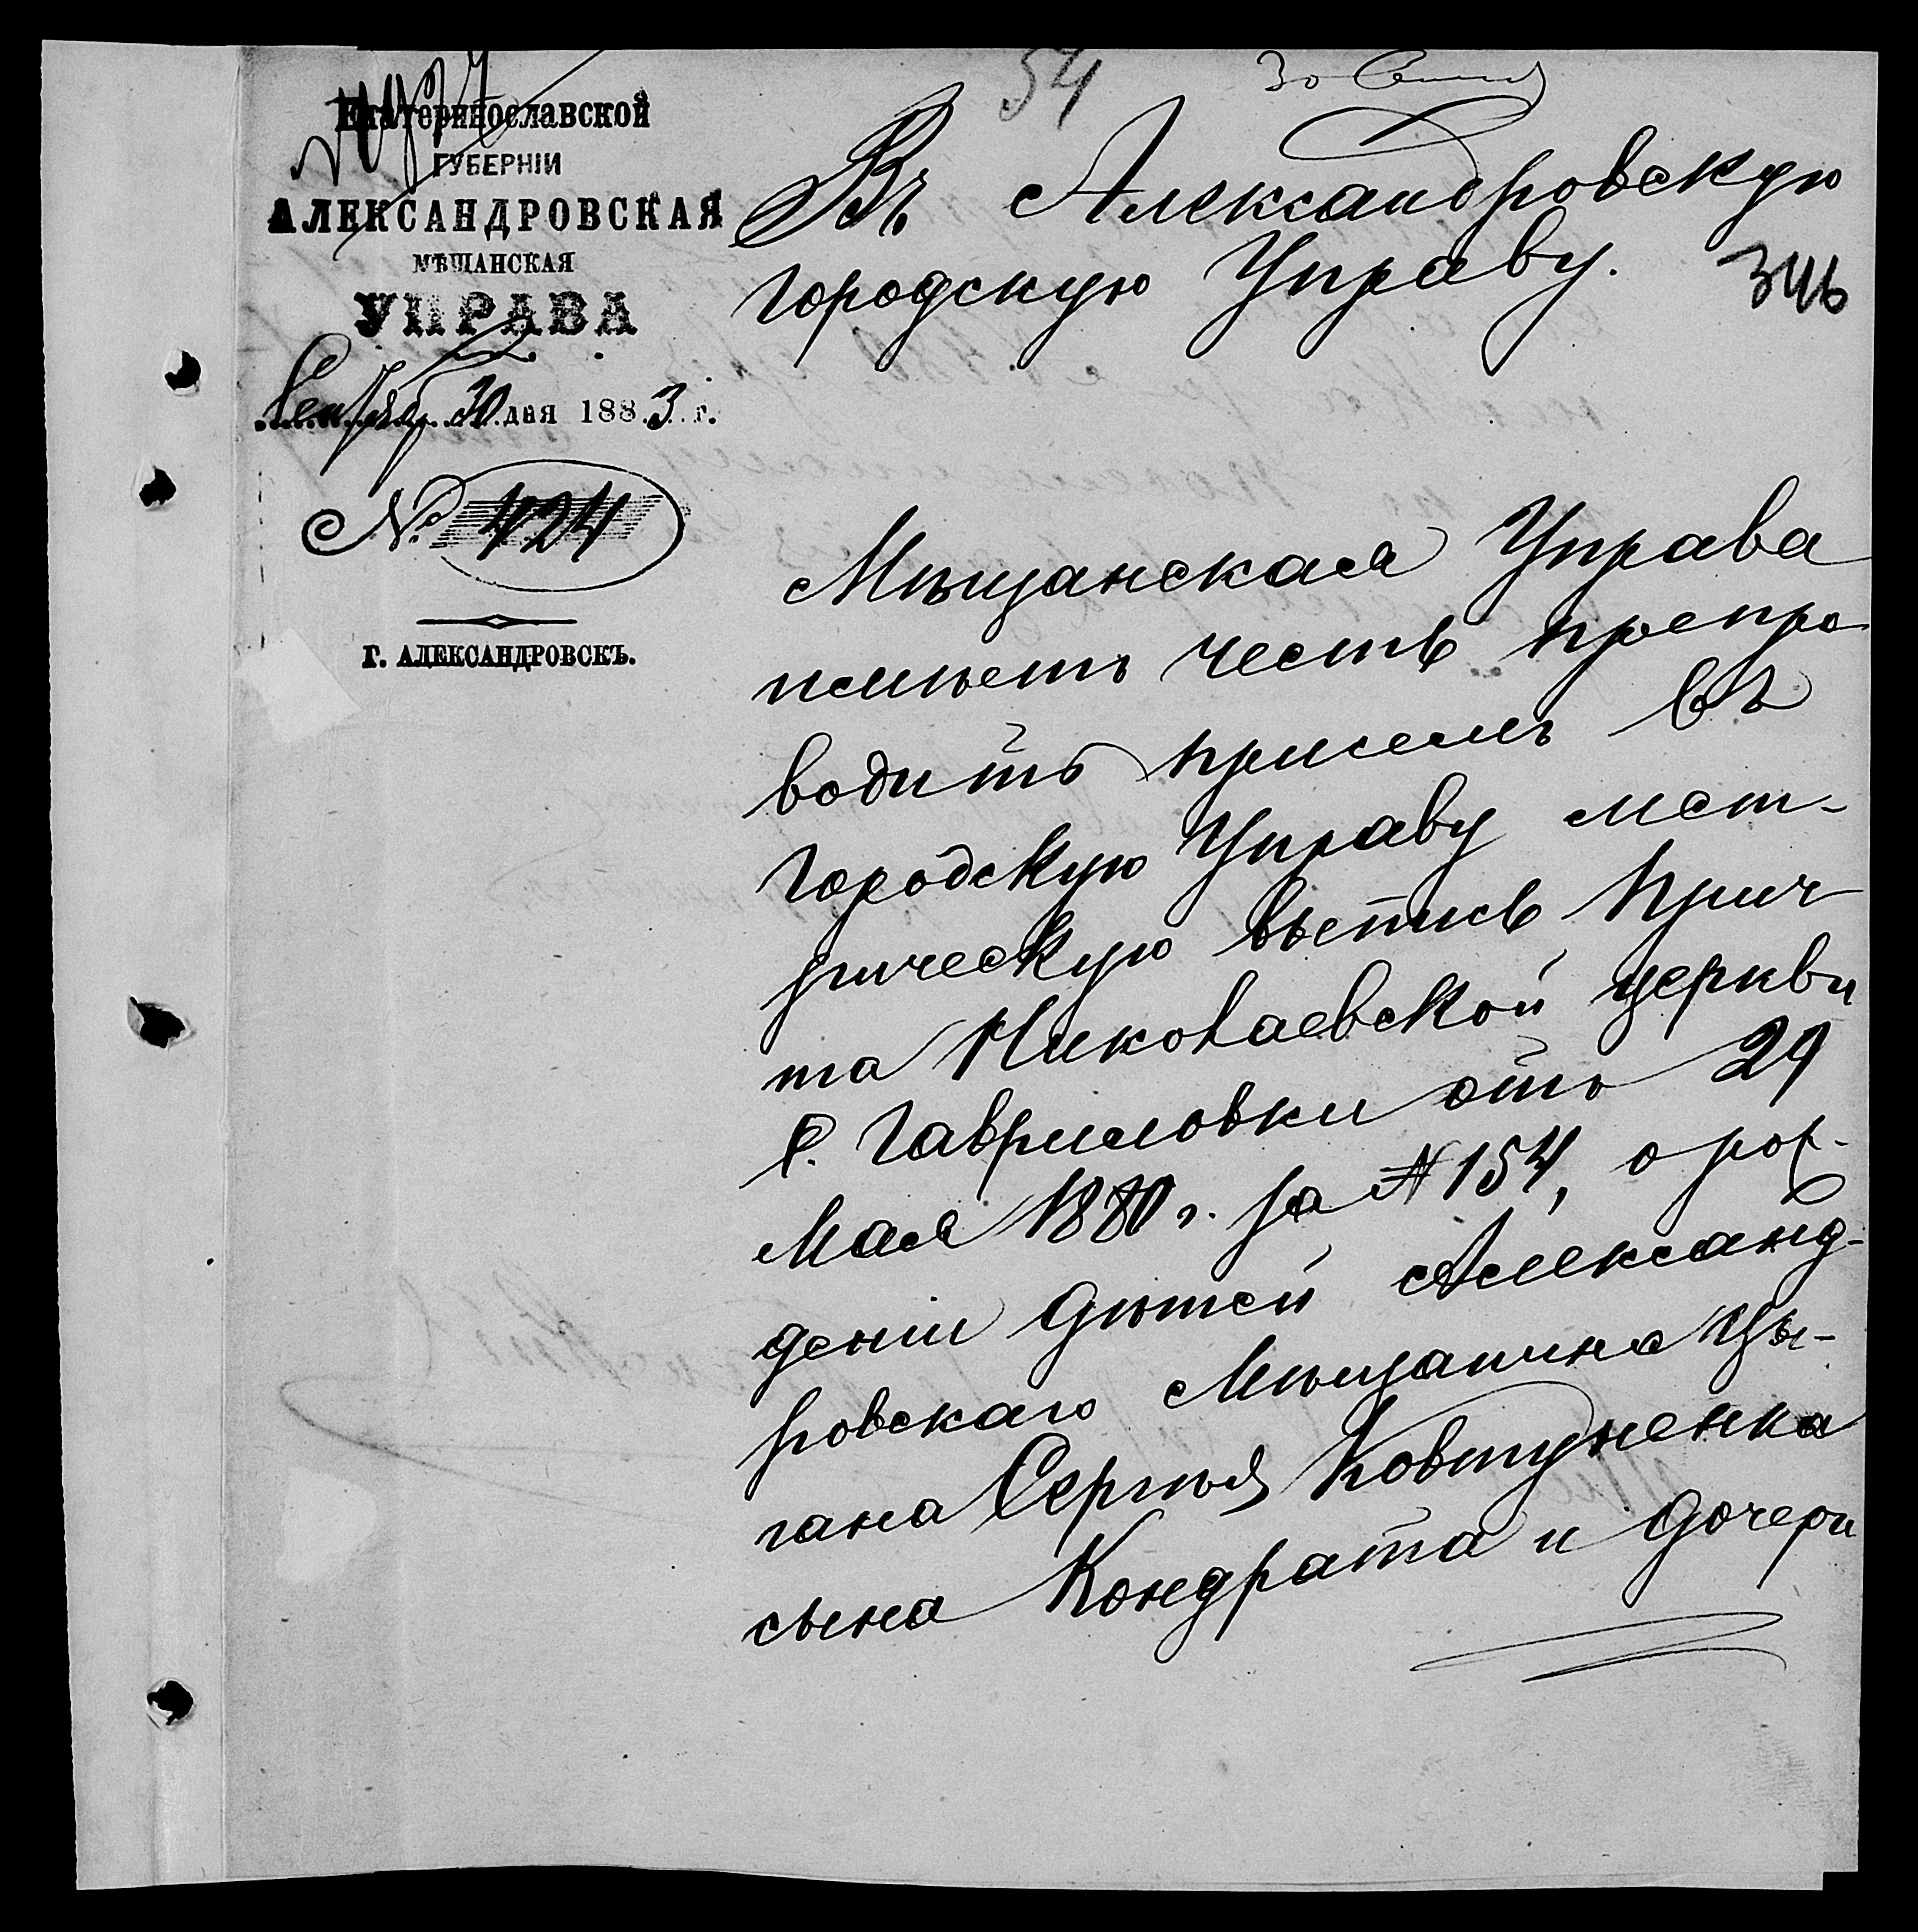 54
Екатеринославской
ГУБЕРНІИ
АЛЕКСАНДРОВСКАЯ
МѢЩАНСКАЯ
УПРАВА
Сентяб. 30 дня 1883 г.
№ 424
Г. АЛЕКСАНДРОВСКЪ.
Въ Александровскую
городскую Управу.
346
Мѣщанская Управа
имѣетъ честь препро
водить присемъ въ
Городскую Управу мет-
рическую выпись прич
та Николаевской церкви
с. Гавриловки отъ 29
Мая 1880 г. за № 154, о рож-
деніи дѣтей Александ-
ровскаго Мѣщанина Цы-
гана Сергѣя Ковтуненка
сына Кондрата и дочери